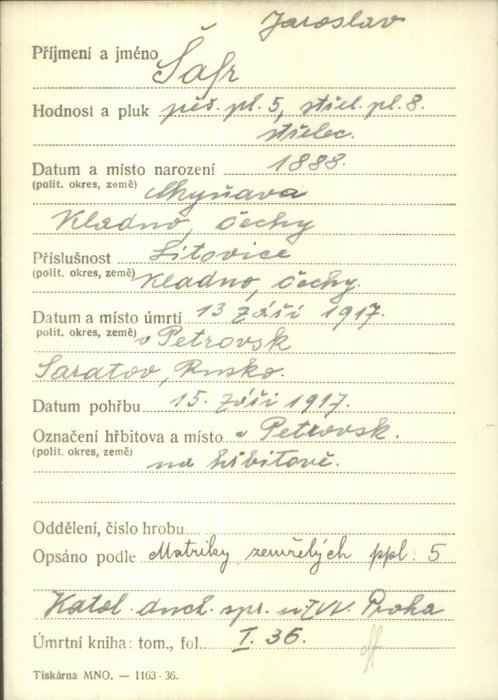 Jaroslav
Příjmení a jméno Šafr
Hodnost a pluk pěš. pl. 5, střel. pl. 8.
střelec.
Datum a místo narození 1888.
(polit. okres, země) Chyňava
Kladno, Čechy
Příslušnost Litovice
(polit. okres, země) Kladno, Čechy.
Datum a místo úmrtí 13 září 1917.
polit. okres, země) v Petrovsk
Saratov, Rusko.
Datum pohřbu 15. září 1917.
Označení hřbitova a místo v Petrovsk.
(polit. okres, země) na hřbitově.
Oddělení, číslo hrobu
Opsáno podle Matriky zemřelých ppl. 5
Katol. duch. spr. u ZVV. Praha
Úmrtní kniha: tom., fol. I. 36.
Tiskárna MNO. — 1163-36.